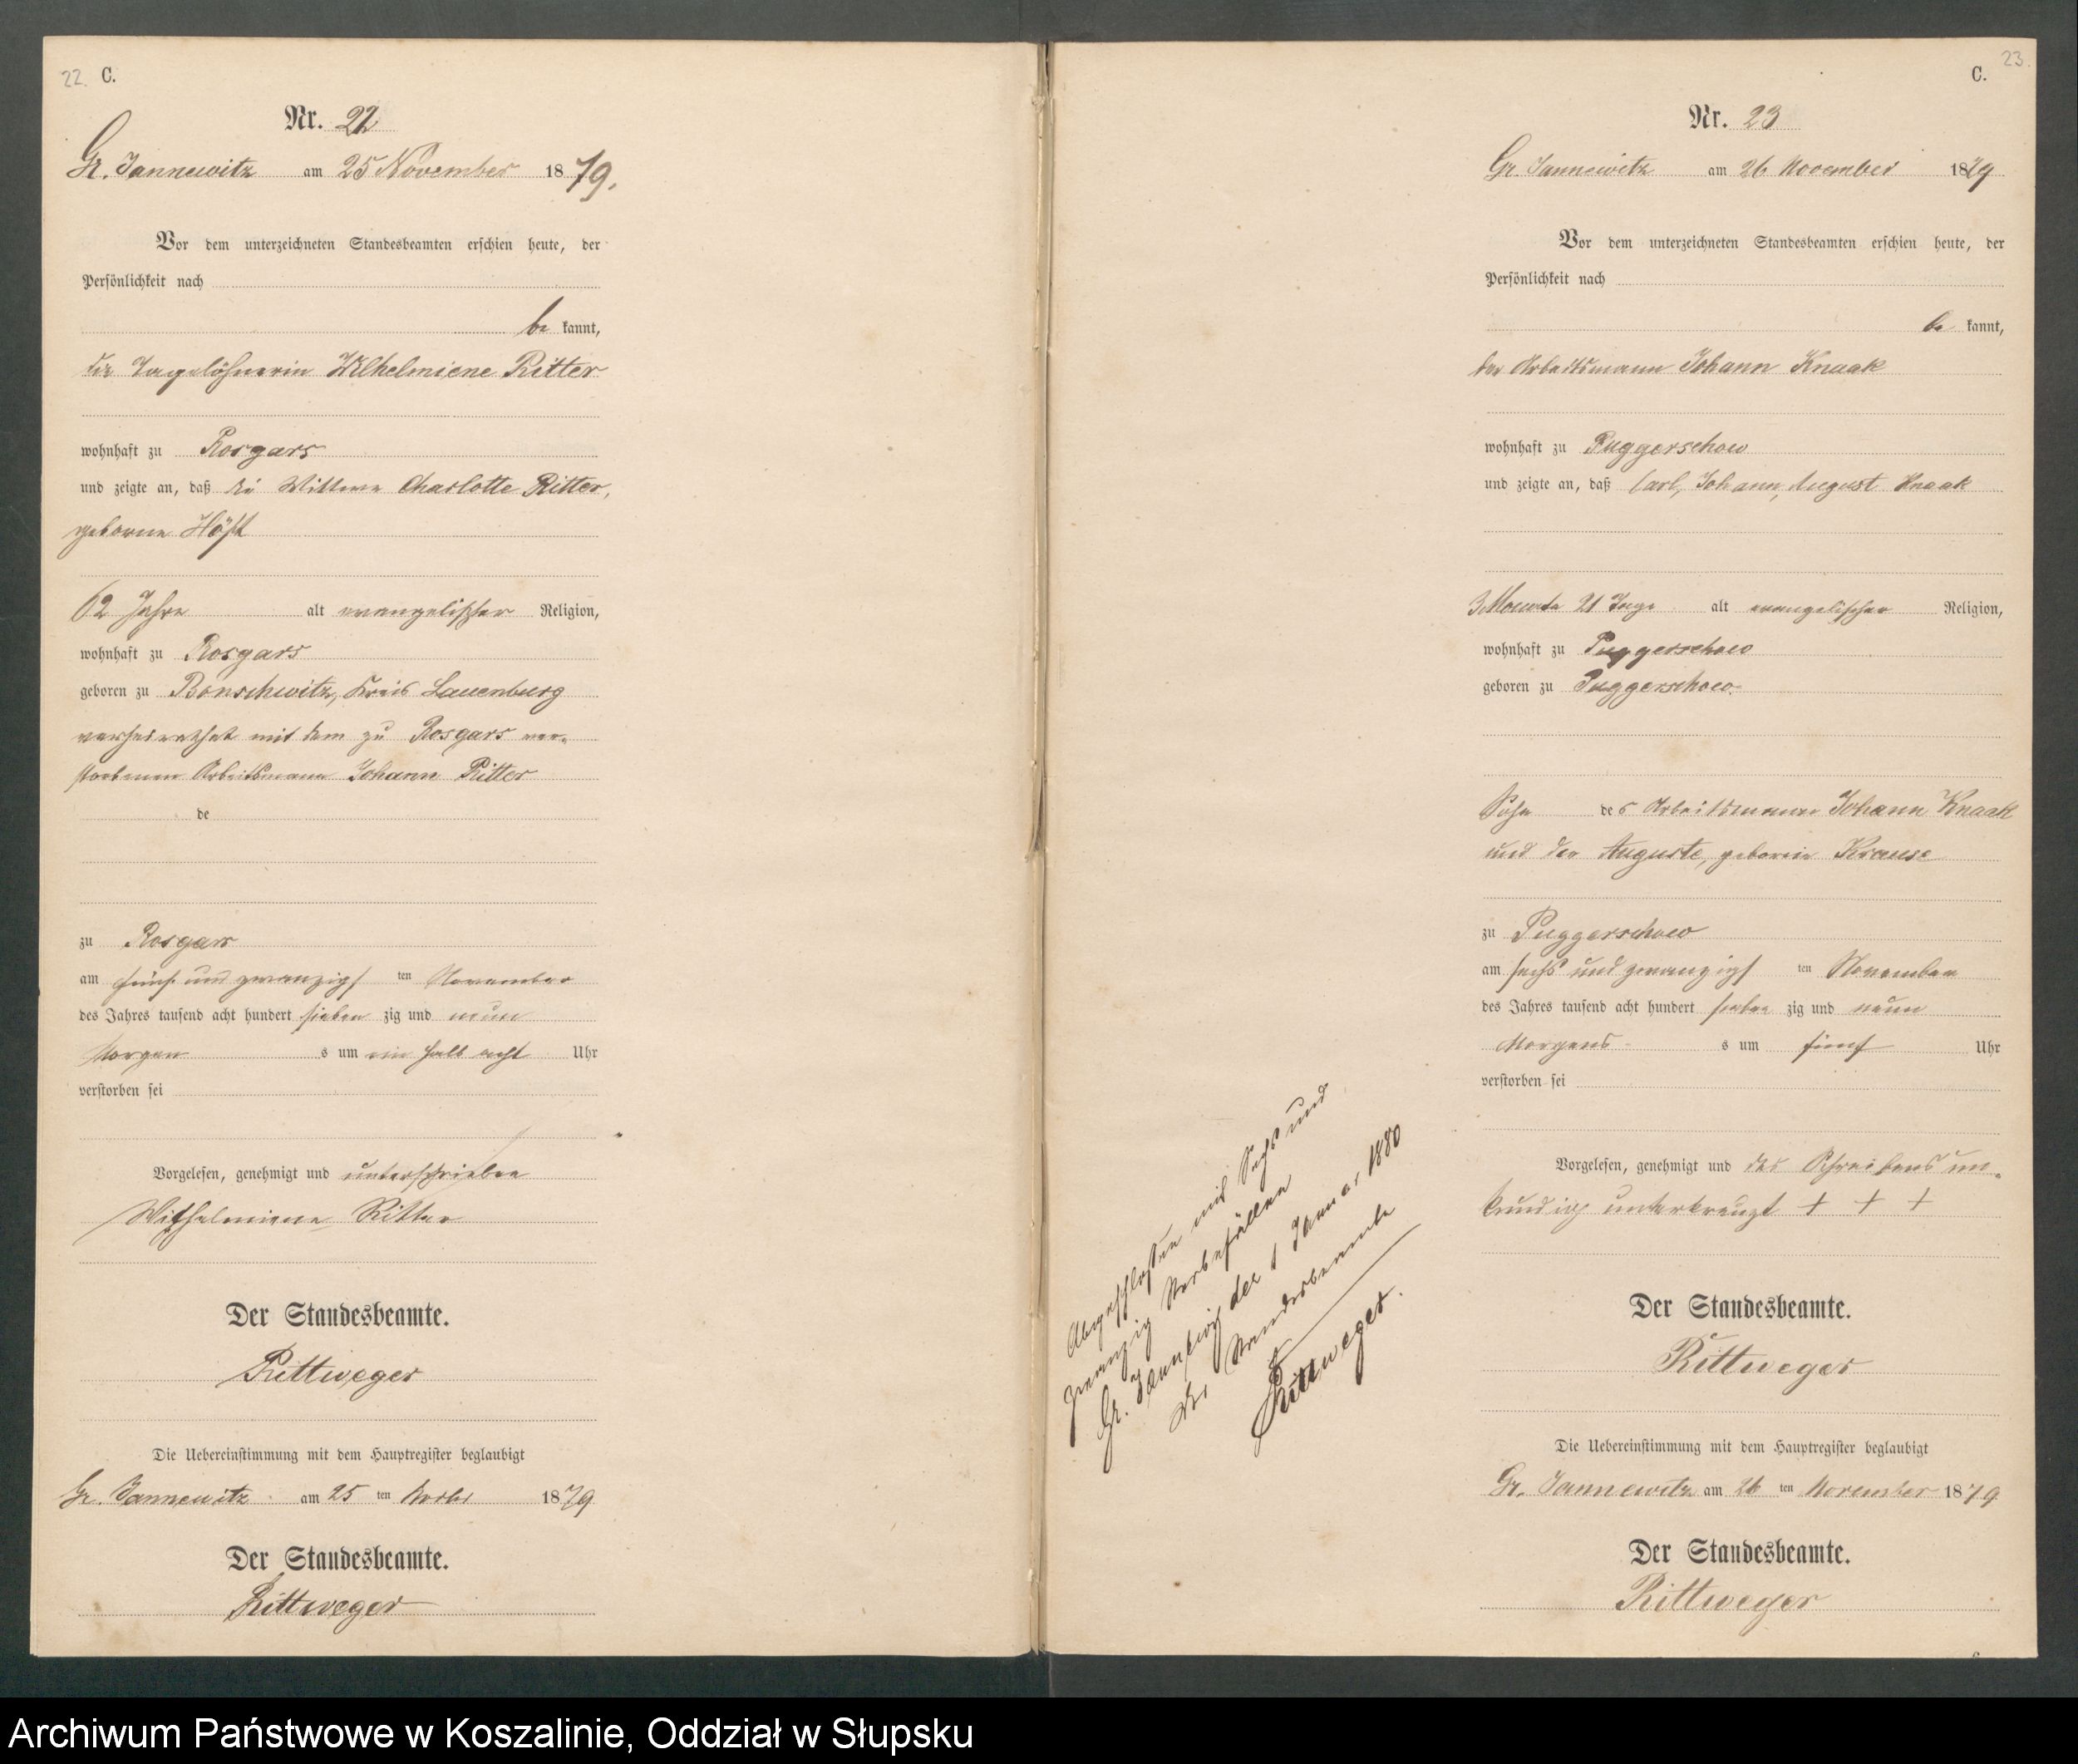 22. C.
Nr. 22
Gr. Jannewitz am 25 November 1879.
Vor dem unterzeichneten Standesbeamten erschien heute, der
Persönlichkeit nach
be kannt,
die Tagelöhnerin Wilhelmiene Ritter
wohnhaft zu Rosgars
und zeigte an, daß die Wittwe Charlotte Ritter,
geborne Höft
62 Jahre alt evangelischer Religion,
wohnhaft zu Rosgars
geboren zu Bonschwitz, Kreis Lauenburg
verheirathet mit dem zu Rosgars ver-
storbenen Arbeitsmann Johann Ritter
de
zu Rosgars
am fünf und zwanzigs ten November
des Jahres tausend acht hundert sieben zig und neun
Morgen s um ein halb acht Uhr
verstorben sei
Vorgelesen, genehmigt und unterschrieben
Wilhelmiene Ritter
Der Standesbeamte.
Rittweger
Die Uebereinstimmung mit dem Hauptregister beglaubigt
Gr. Jannewitz am 25 ten Novbr 1879
Der Standesbeamte.
Rittweger
23.
C.
Nr. 23
Gr. Jannewitz am 26 November 1879
Vor dem unterzeichneten Standesbeamten erschien heute, der
Persönlichkeit nach
be kannt,
der Arbeitsmann Johann Knaak
wohnhaft zu Puggerschow
und zeigte an, daß Carl, Johann, August Knaak
3 Monate 21 Tage alt evangelischer Religion,
wohnhaft zu Puggerschow
geboren zu Puggerschow
Sohn des Arbeitsmann Johann Knaak
und der Auguste, geborene Krause
zu Puggerschow
am sechs und zwanzigs ten November
des Jahres tausend acht hundert sieben zig und neun
Morgens s um fünf Uhr
verstorben sei
Vorgelesen, genehmigt und des Schreibens un-
kundig unterkreuzt + + +
Der Standesbeamte.
Rittweger
Die Uebereinstimmung mit dem Hauptregister beglaubigt
Gr. Jannewitz am 26 ten November 1879
Der Standesbeamte.
Rittweger
Abgeschlossen mit Sechs und
zwanzig Sterbefällen
Gr. Jannewitz den 1 Januar 1880
Der Standesbeamte
Rittweger.
Archiwum Państwowe w Koszalinie, Oddział w Słupsku